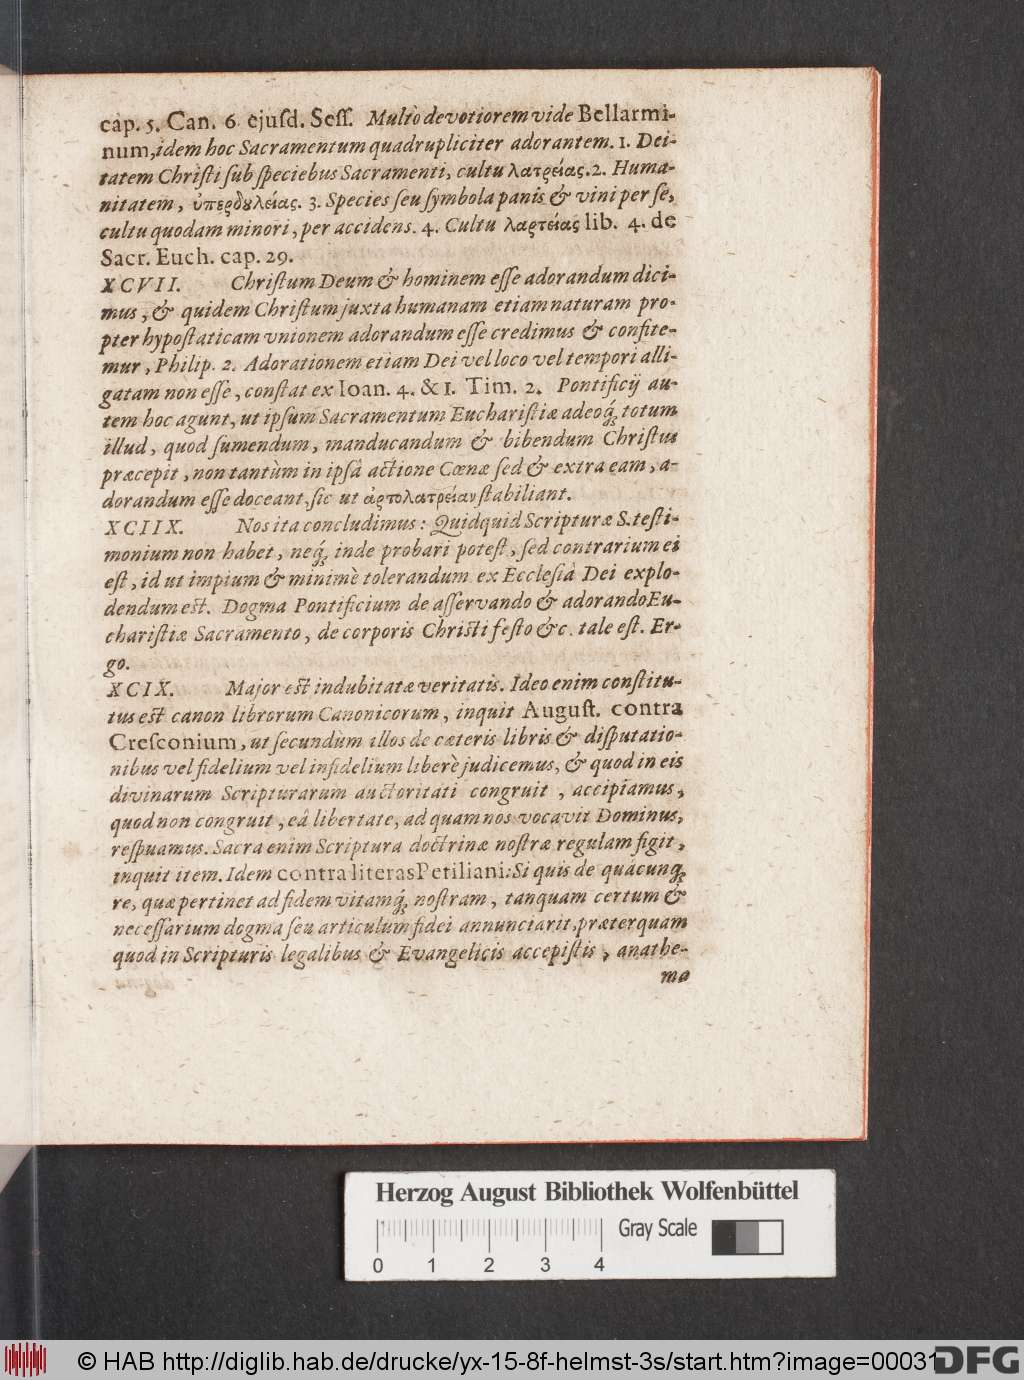 cap. 5. Can. 6 ejuſd. Seſſ. Multò devotiorem vide Bellarmi-
num, idem hoc Sacramentum quadrupliciter adorantem. 1. Dei-
tatem Chriſti ſub ſpeciebus Sacramenti, cultu λατρείας. 2. Huma-
nitatem, ὑπερδȣλείας. 3. Species ſeu ſymbola panis & vini per ſe,
cultu quodam minori, per accidens. 4. Cultu λαρτείας lib. 4. de
Sacr. Euch. cap. 29.
XCVII. Chriſtum Deum & hominem eſſe adorandum dici-
mus, & quidem Chriſtum juxta humanam etiam naturam pro-
pter hypoſtaticam vnionem adorandum eſſe credimus & confite-
mur, Philip. 2. Adorationem etiam Dei vel loco vel tempori alli-
gatam non eſſe, conſtat ex Ioan. 4. & 1. Tim. 2. Pontificij au-
tem hoc agunt, ut ipſum Sacramentum Euchariſtiæ adeoq́; totum
illud, quod ſumendum, manducandum & bibendum Chriſtus
præcepit, non tantùm in ipſâ actione Cœnæ ſed & extra eam, a-
dorandum eſſe doceant, ſic ut ἀρτολατρείαν ſtabiliant.
XCIIX. Nos ita concludimus: Quidquid Scripturæ S. teſti-
monium non habet, neq́; inde probari poteſt, ſed contrarium ei
eſt, id ut impium & minimè tolerandum ex Eccleſiâ Dei explo-
dendum eſt. Dogma Pontificium de aſſervando & adorando Eu-
chariſtiæ Sacramento, de corporis Chriſti feſto &c. tale eſt. Er-
go.
XCIX. Major eſt indubitatæ veritatis. Ideo enim conſtitu-
tus eſt canon librorum Canonicorum, inquit Auguſt. contra
Creſconium, ut ſecundùm illos de cæteris libris & diſputatio-
nibus vel fidelium vel infidelium liberè judicemus, & quod in eis
divinarum Scripturarum auctoritati congruit, accipiamus,
quod non congruit, eâ libertate, ad quam nos vocavit Dominus,
reſpuamus. Sacra enim Scriptura doctrinæ noſtræ regulam figit,
inquit item. Idem contra literas Petiliani: Si quis de quâcunq́;
re, quæ pertinet ad fidem vitamq́; noſtram, tanquam certum &
neceſſarium dogma ſeu articulum fidei annunciarit, præterquam
quod in Scripturis legalibus & Evangelicis accepiſtis, anathe-
ma
Herzog August Bibliothek Wolfenbüttel
Gray Scale
0 1 2 3 4
© HAB http://diglib.hab.de/drucke/yx-15-8f-helmst-3s/start.htm?image=00031
DFG